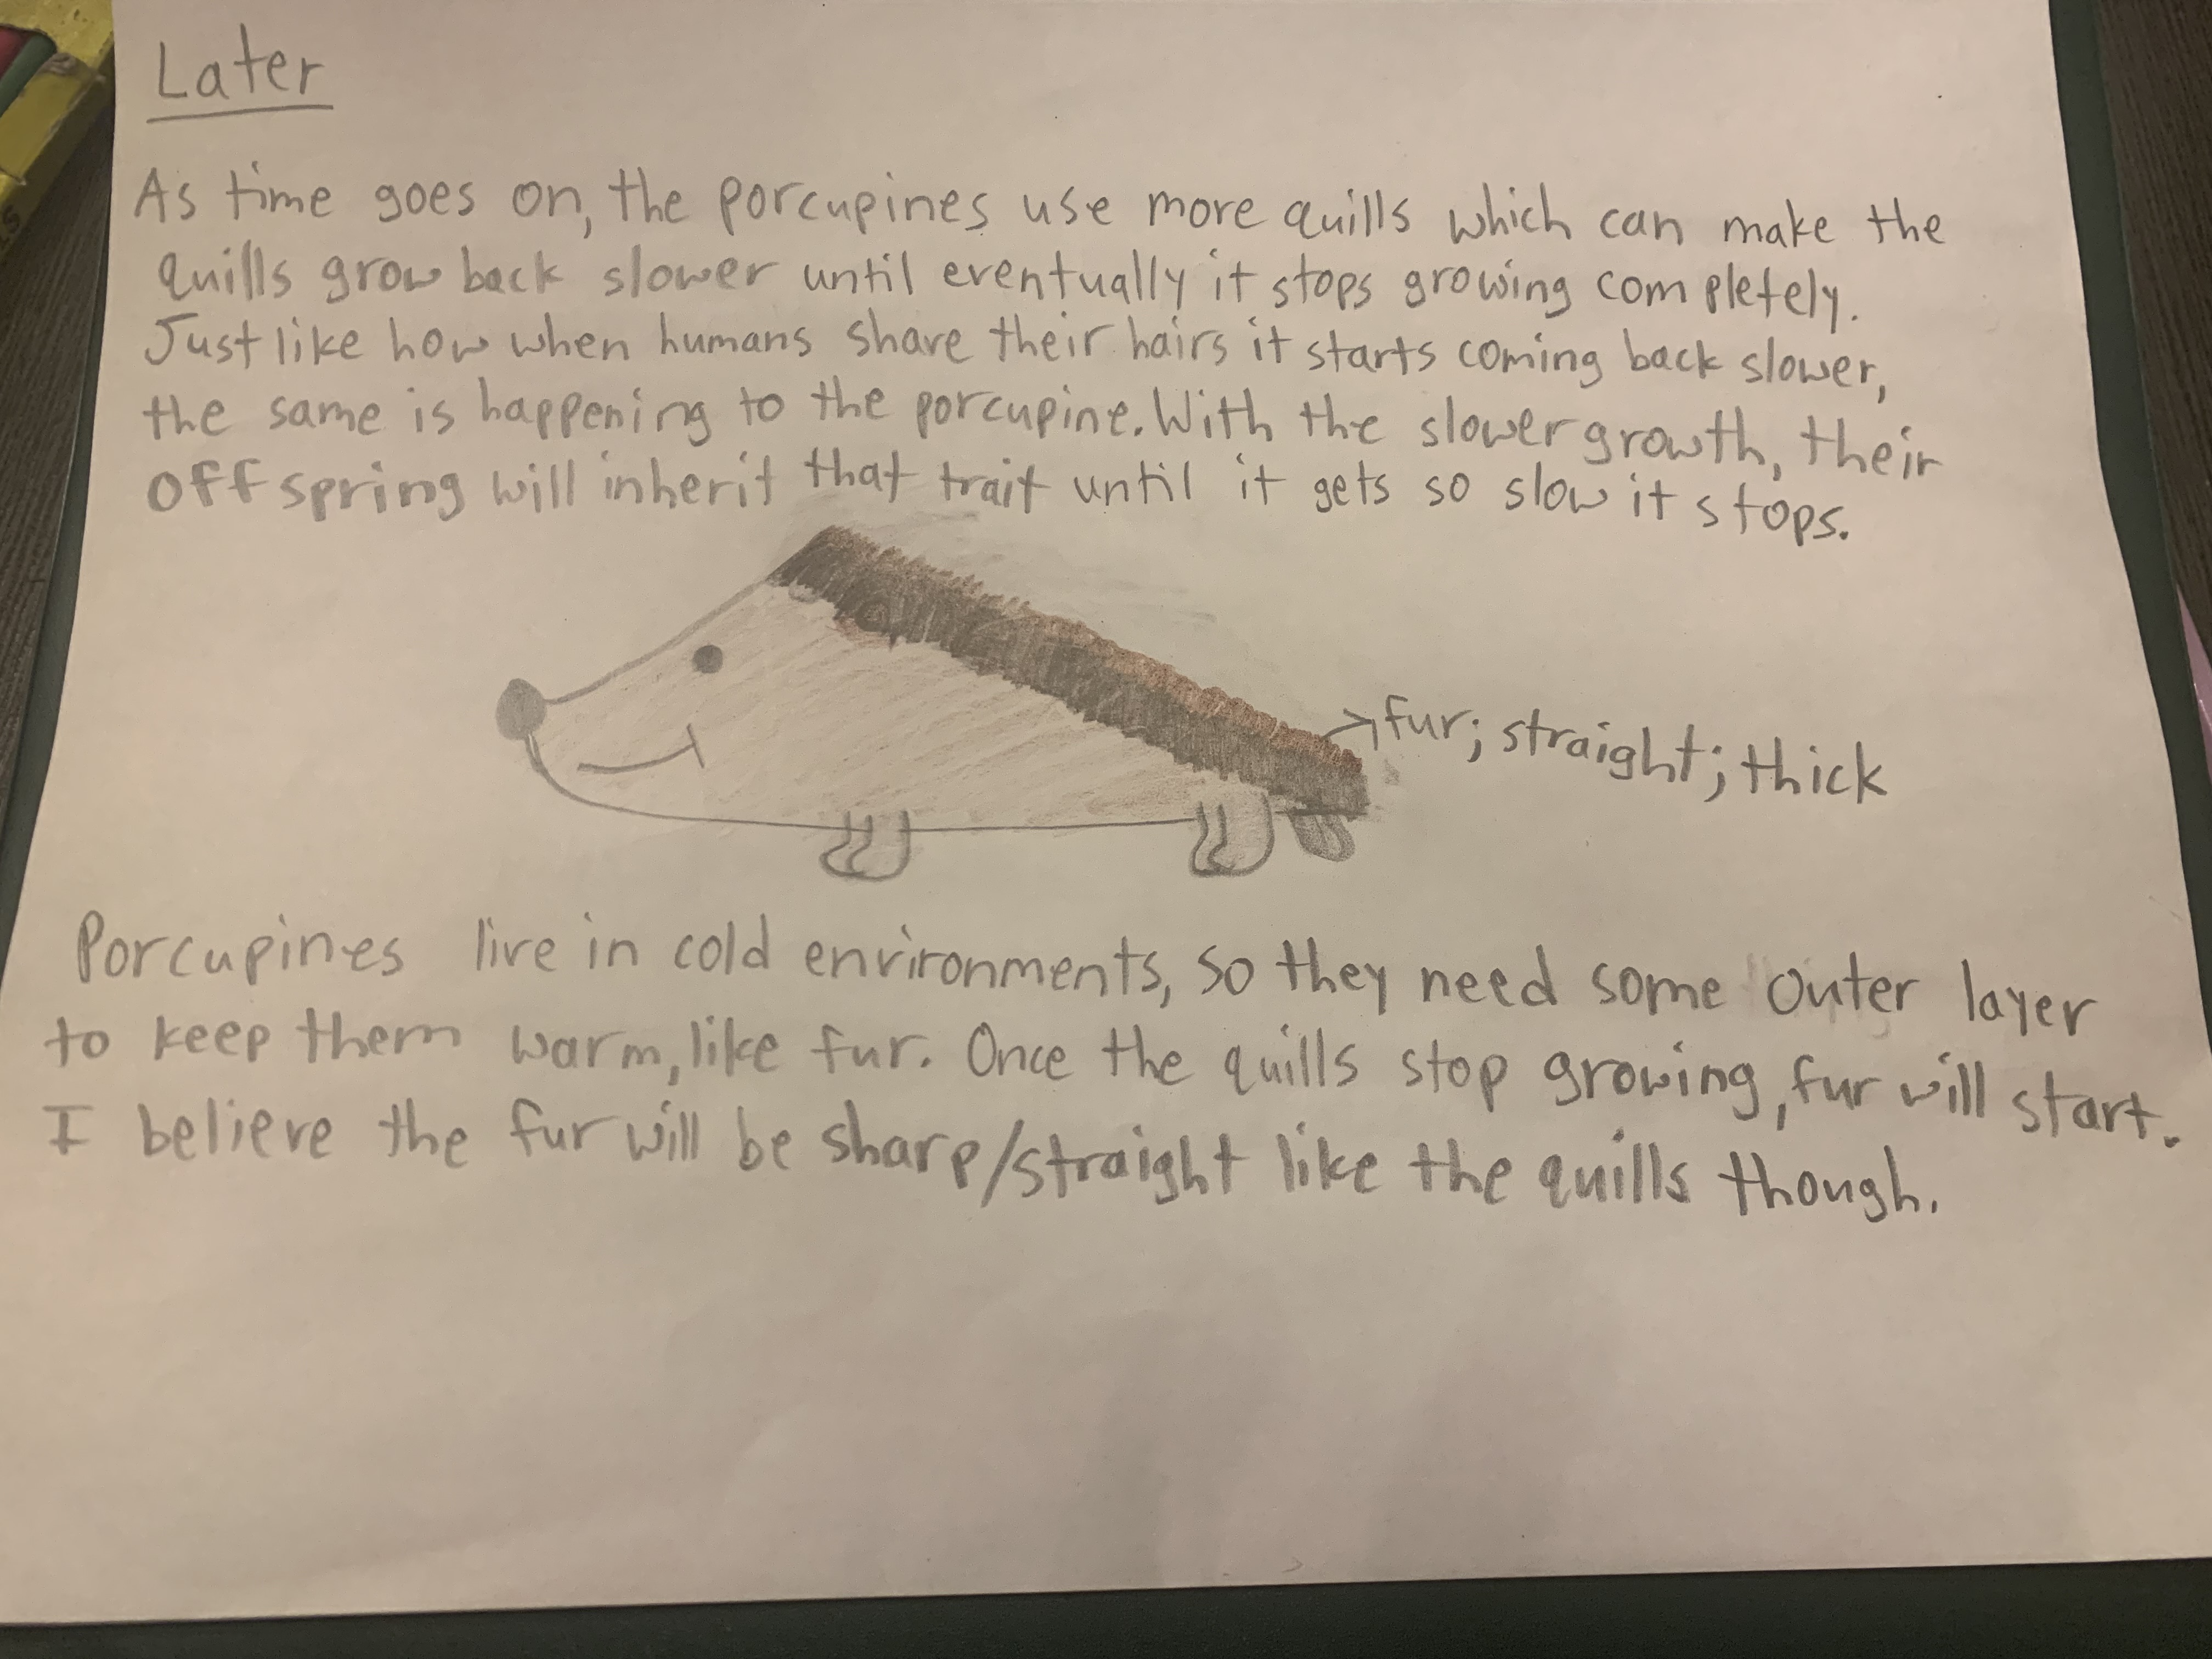 Later
As time goes on, the porcupines use more quills which can make the
quills grow back slower until eventually it stops growing completely.
Just like how when humans share their hairs it starts coming back slower,
the same is happening to the porcupine. With the slower growth, their
offspring will inherit that trait until it gets so slow it stops.
fur; straight; thick
Porcupines live in cold environments, so they need some outer layer
to keep them warm, like fur. Once the quills stop growing, fur will start.
I believe the fur will be sharp/straight like the quills though.